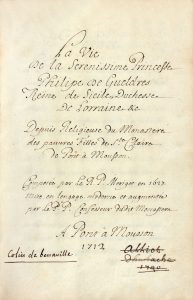 La Vie
De la Serenissime Princesse
Philipe de Gueldres
Reine de Sicile Duchesse
De Lorraine &c
Depuis Religieuse du Monastere
des pauvres Filles de Ste Claire
de Pont à Mousson.
Composée par le R. P. Merigot en 1627
Mise en langage moderne et augmentée
par le P. P. Confesseur dudit Monastere
A Pont à Mousson
1712